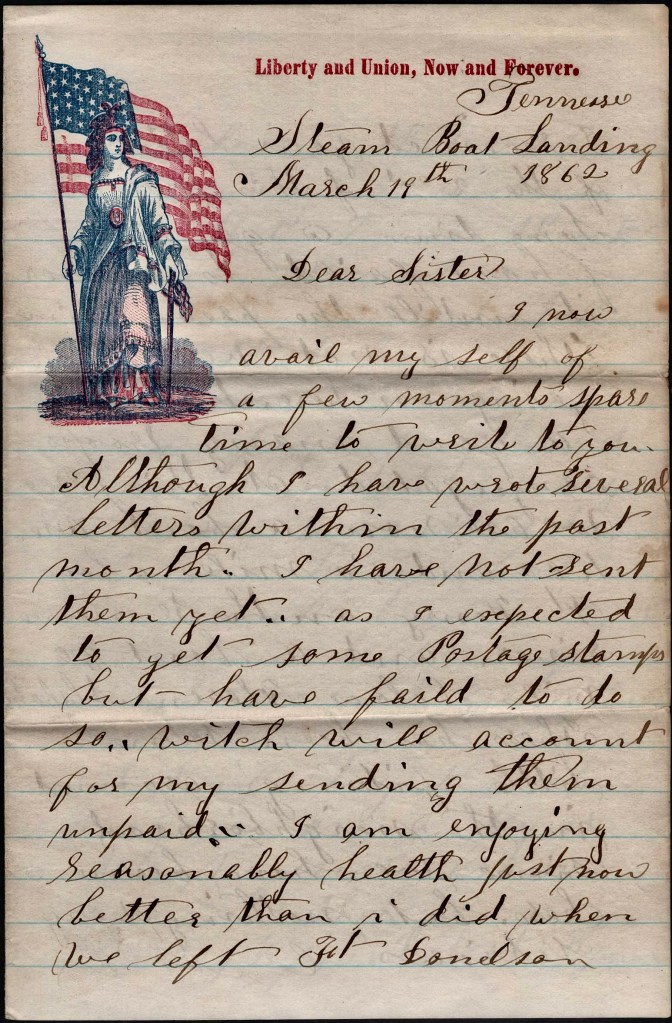 Liberty and Union, Now and Forever.
Tennessee
Steam Boat Landing
March 19th 1862
Dear Sister
I now
avail my self of
a few moments spare
time to write to you.
Although I have wrote several
letters within the past
month.. I have not sent
them yet.. as I expected
to get some Postage stamps
but have faild to do
so.. witch will account
for my sending them
unpaid.. I am enjoying
reasonably health just now
better than i did when
we left Ft Donelson